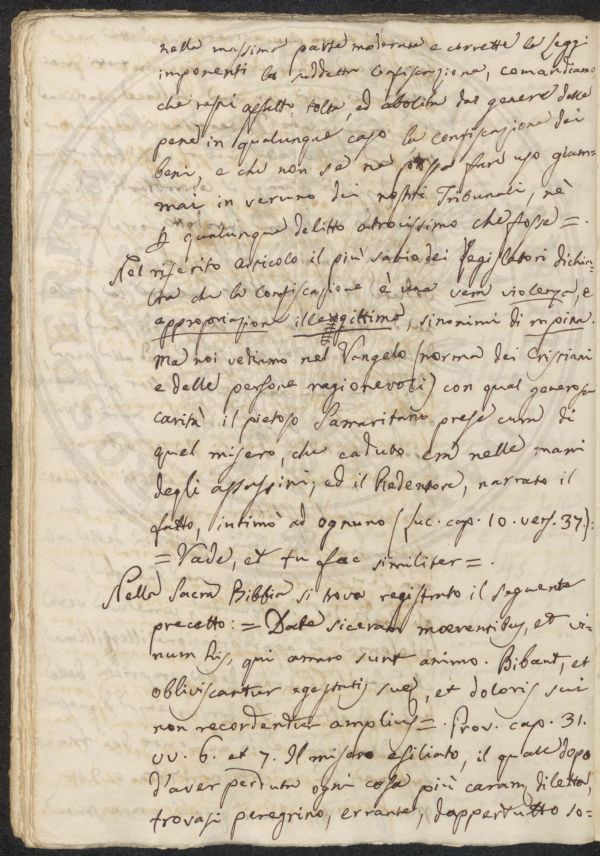 nella massima parte moderate e corrette le leggi
imponenti la suddetta Confiscazione, comandiamo
che resti affatto tolta, ed abolita dal genere delle
pene in qualunque caso la confiscazione dei
beni, e che non se ne possa fare uso giam=
mai in veruno dei nostri Tribunali, nè
p qualunque delitto atrocissimo che fosse =.
Nel riferito articolo il più savio dei Legislatori dichia=
ra che la Confiscazione è una vera violenza, e
appropriazione illegittima, sinonimi di rapina.
Ma noi vediamo nel Vangelo (norma dei Cristiani
e delle persone ragionevoli) con qual generosa
carità il pietoso Samaritano prese cura di
quel misero, che caduto era nelle mani
degli assassini; ed il Redentore, narrato il
fatto, intimò ad ognuno (Luc. cap. 10. vers. 37.):
= Vade, et tu fac similiter =.
Nella Sacra Bibbia si trova registrato il seguente
precetto: = Date siceram moerentibus, et vi=
num his, qui amaro sunt animo. Bibant, et
obliviscantur egestatis suę, et doloris sui
non recordentur amplius =. Prov. cap. 31.
vv. 6. et 7. Il misero esiliato, il quale dopo
d'aver perduta ogni cosa più caram, diletta,
trovasi peregrino, errante, dappertutto so=